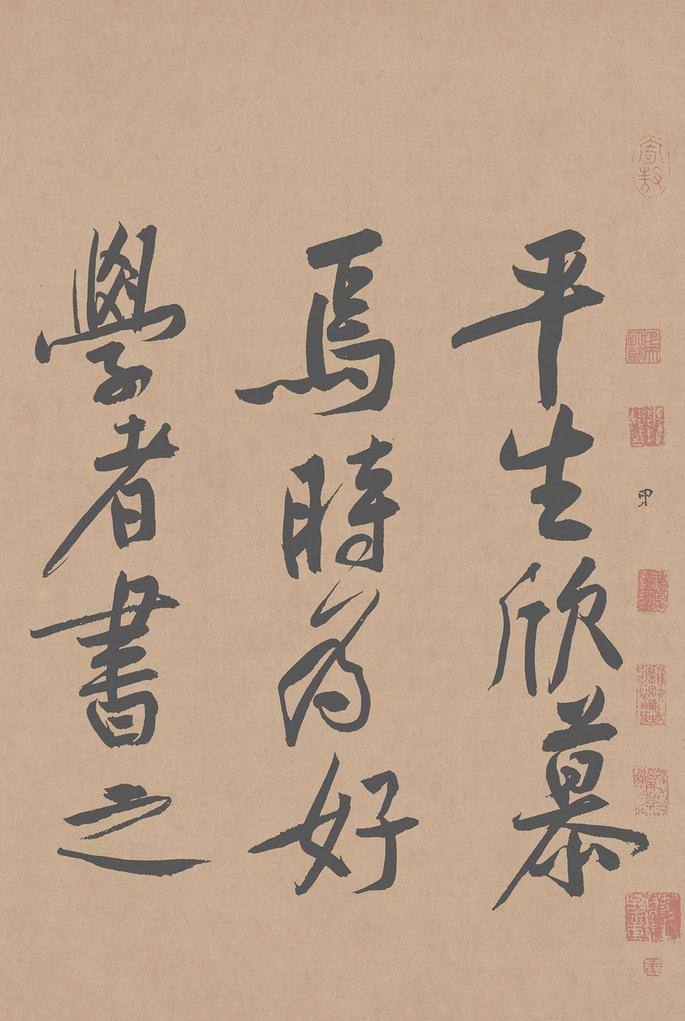 平生欣慕
焉時為好
學者書之
甲